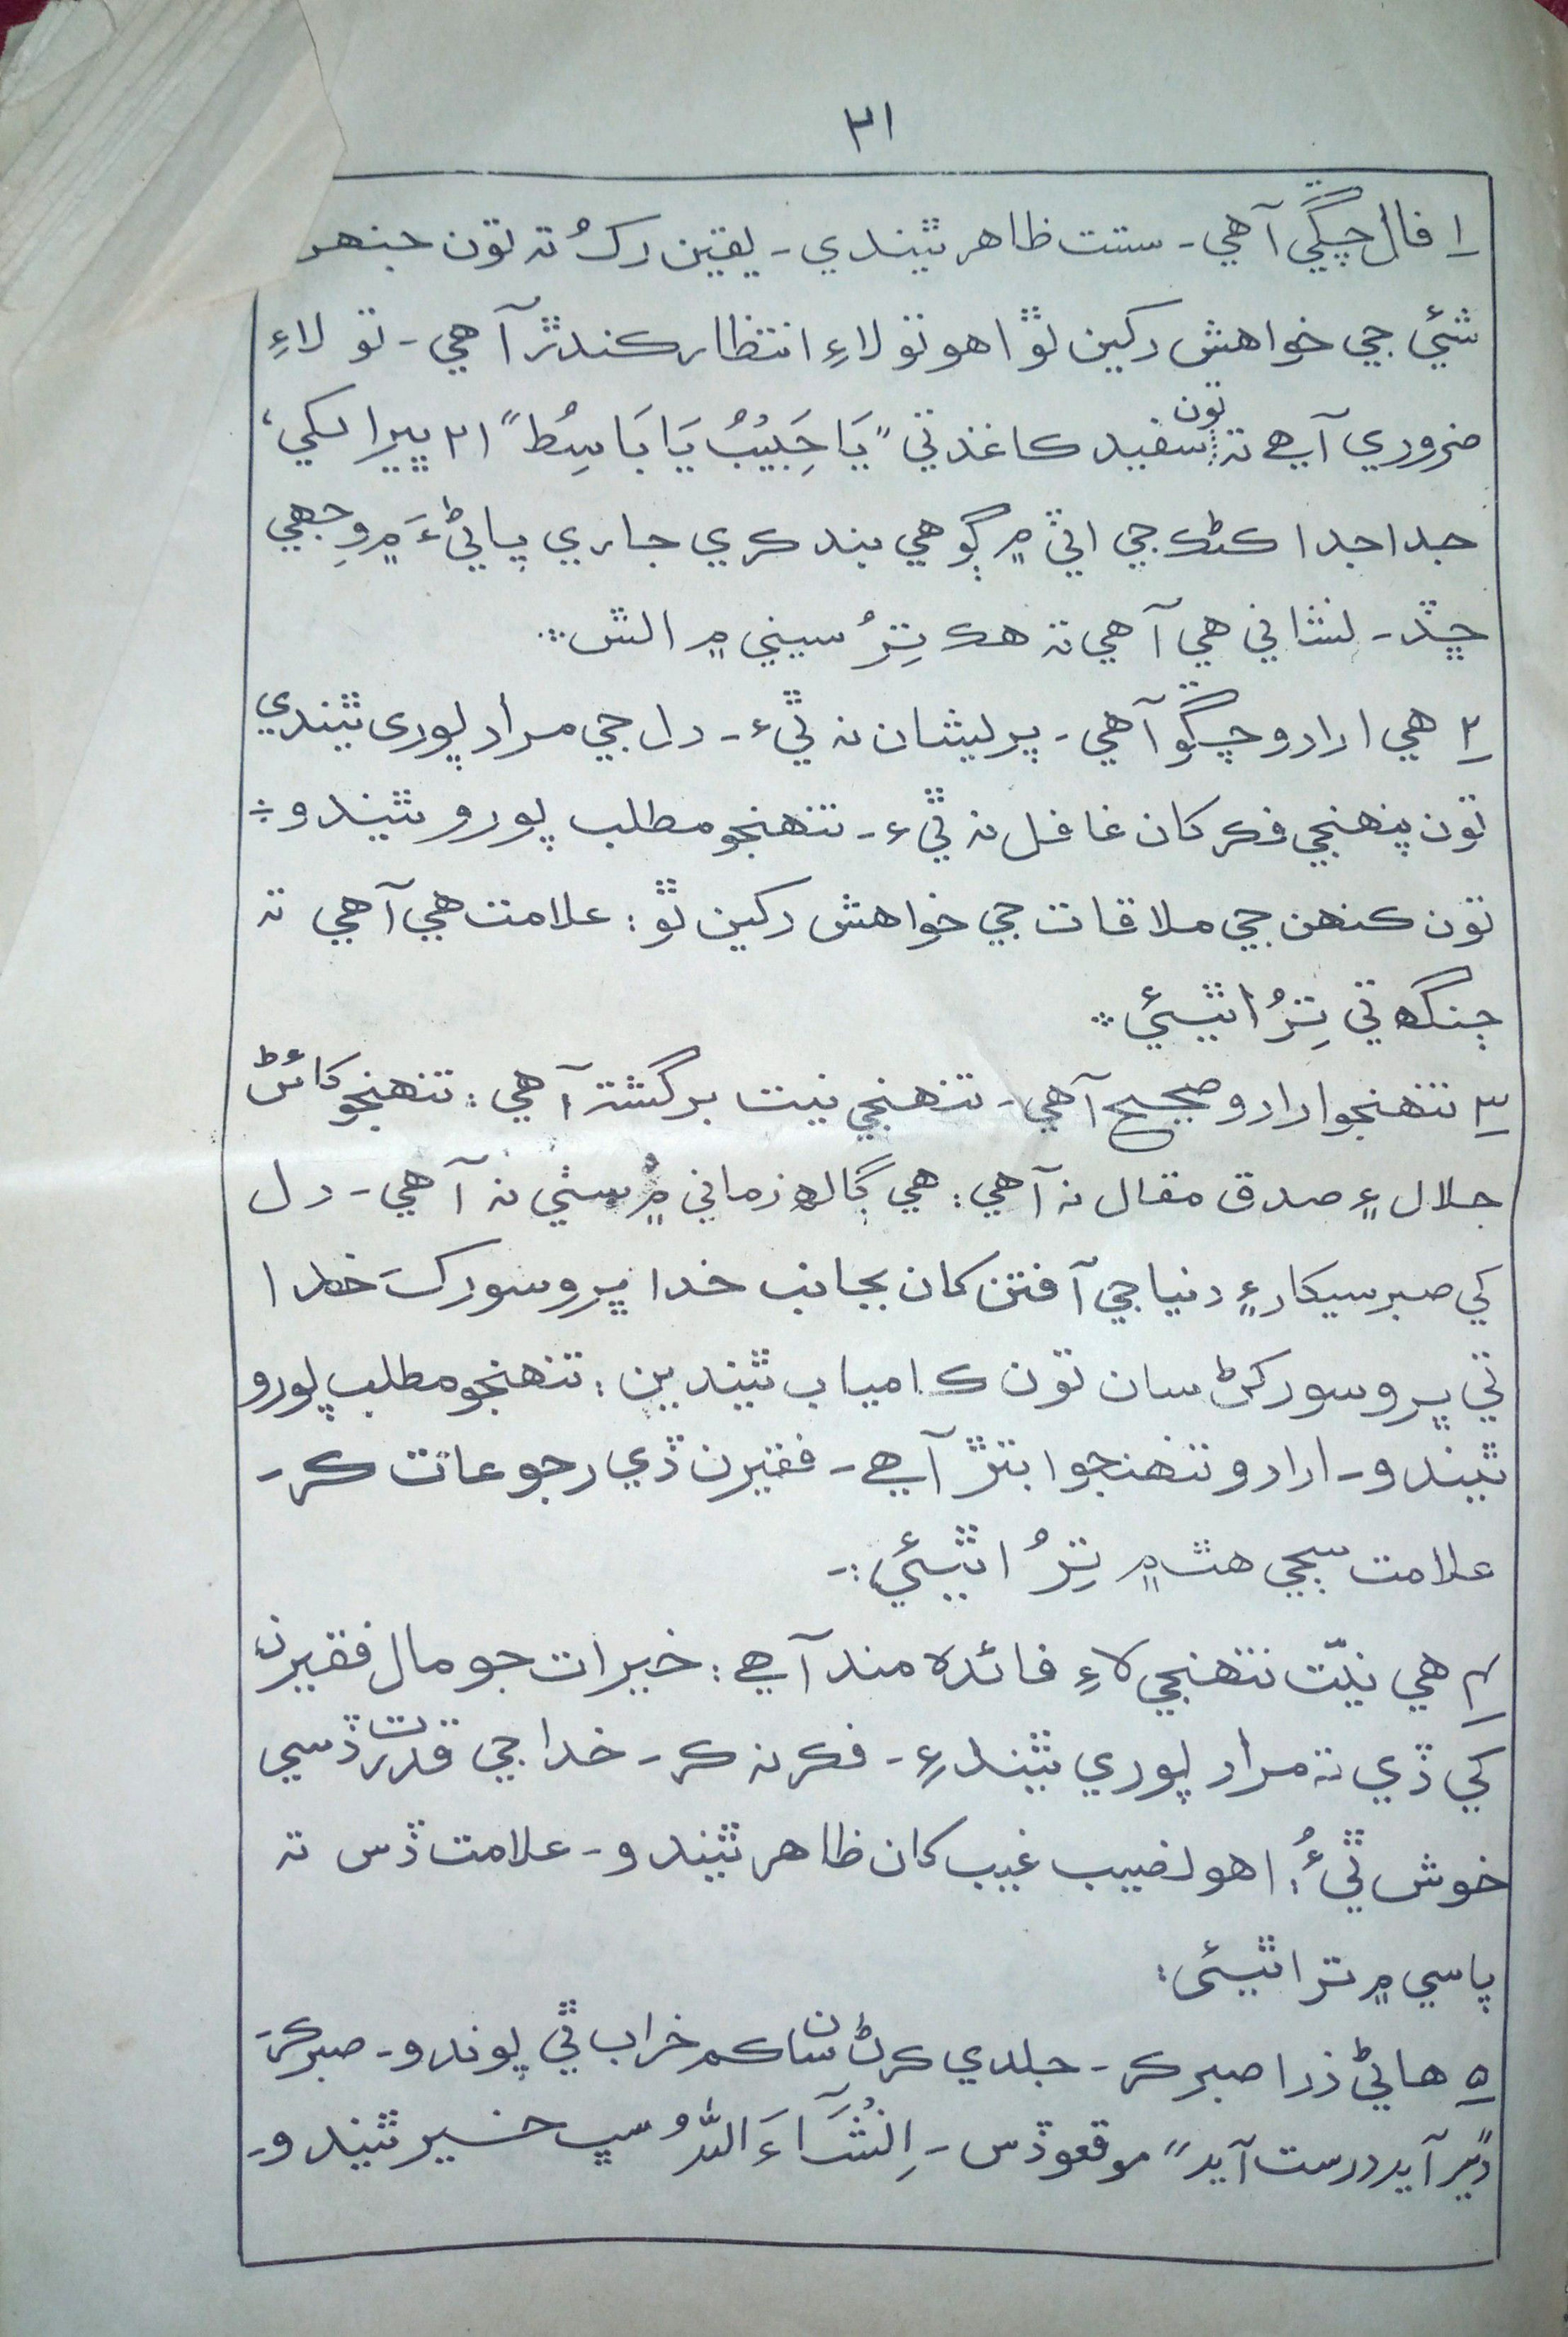 ٢١
١ فال چڱي آهي۔ ستت ظاهر ٿيندي۔ يقين رکُ تہ تون جنهر
شئي جي خواهش رکين ٿو اهو تو لاءِ انتظار ڪندڙ آهي۔ تو لاءِ
ضروري آهي تہ تون سفيد ڪاغذ تي "يَا حَبِيْبُ يَا بَاسِطُ" ٢١ ڀيرا لکي،
جدا جدا ڪڻڪ جي اٽي ۾ ڳوهي بند ڪري جاري پاڻيءَ ۾ وجهي
ڇڏ۔ نشاني هي آهي تہ هڪ تِرُ سيني ۾ اٿس
٢ هي ارادو چڱو آهي۔ پريشان نہ ٿيءُ۔ دل جي مراد پوري ٿيندي
تون پنهنجي فڪر کان غافل نہ ٿيءُ۔ تنهنجو مطلب پورو ٿيندو ÷
تون ڪنهن جي ملاقات جي خواهش رکين ٿو: علامت هي آهي تہ
ڄنگھ تي تِرُ اٿيئي
٣ تنهنجو ارادو صحيح آهي۔ تنهنجي نيت برگشتہ آهي: تنهنجو کائڻ
جلال ۽ صدق مقال نہ آهي: هي ڳالھ زماني ۾ سٺي نہ آهي۔ دل
کي صبر سيکار ۽ دنيا جي آفتن کان بجانب خدا ڀروسو رکَ خدا
تي ڀروسو رکڻ سان تون ڪامياب ٿيندين: تنهنجو مطلب پورو
ٿيندو۔ ارادو تنهنجو ابتڙ آهي۔ فقيرن ڏي رجوعات ڪر۔
علامت سڄي هٿ ۾ تِرُ اٿيئي:۔
٤ هي نيّت تنهنجي لاءِ فائدہ مند آهي: خيرات جو مال فقيرن
کي ڏي تہ مراد پوري ٿيندءِ۔ فڪر نہ ڪر۔ خدا جي قدرت ڏسي
خوش ٿيءُ: اهو نصيب غيب کان ظاهر ٿيندو۔ علامت ڏس تہ
پاسي ۾ تر اٿيئي:
٥ هاڻي ذرا صبر ڪر۔ جلدي ڪرڻ سان ڪم خراب ٿي پوندو۔ صبر ڪر
"دير آيد درست آيد" موقعو ڏس۔ اِنْشَآءَ اللّٰهُ سڀ خير ٿيندو۔